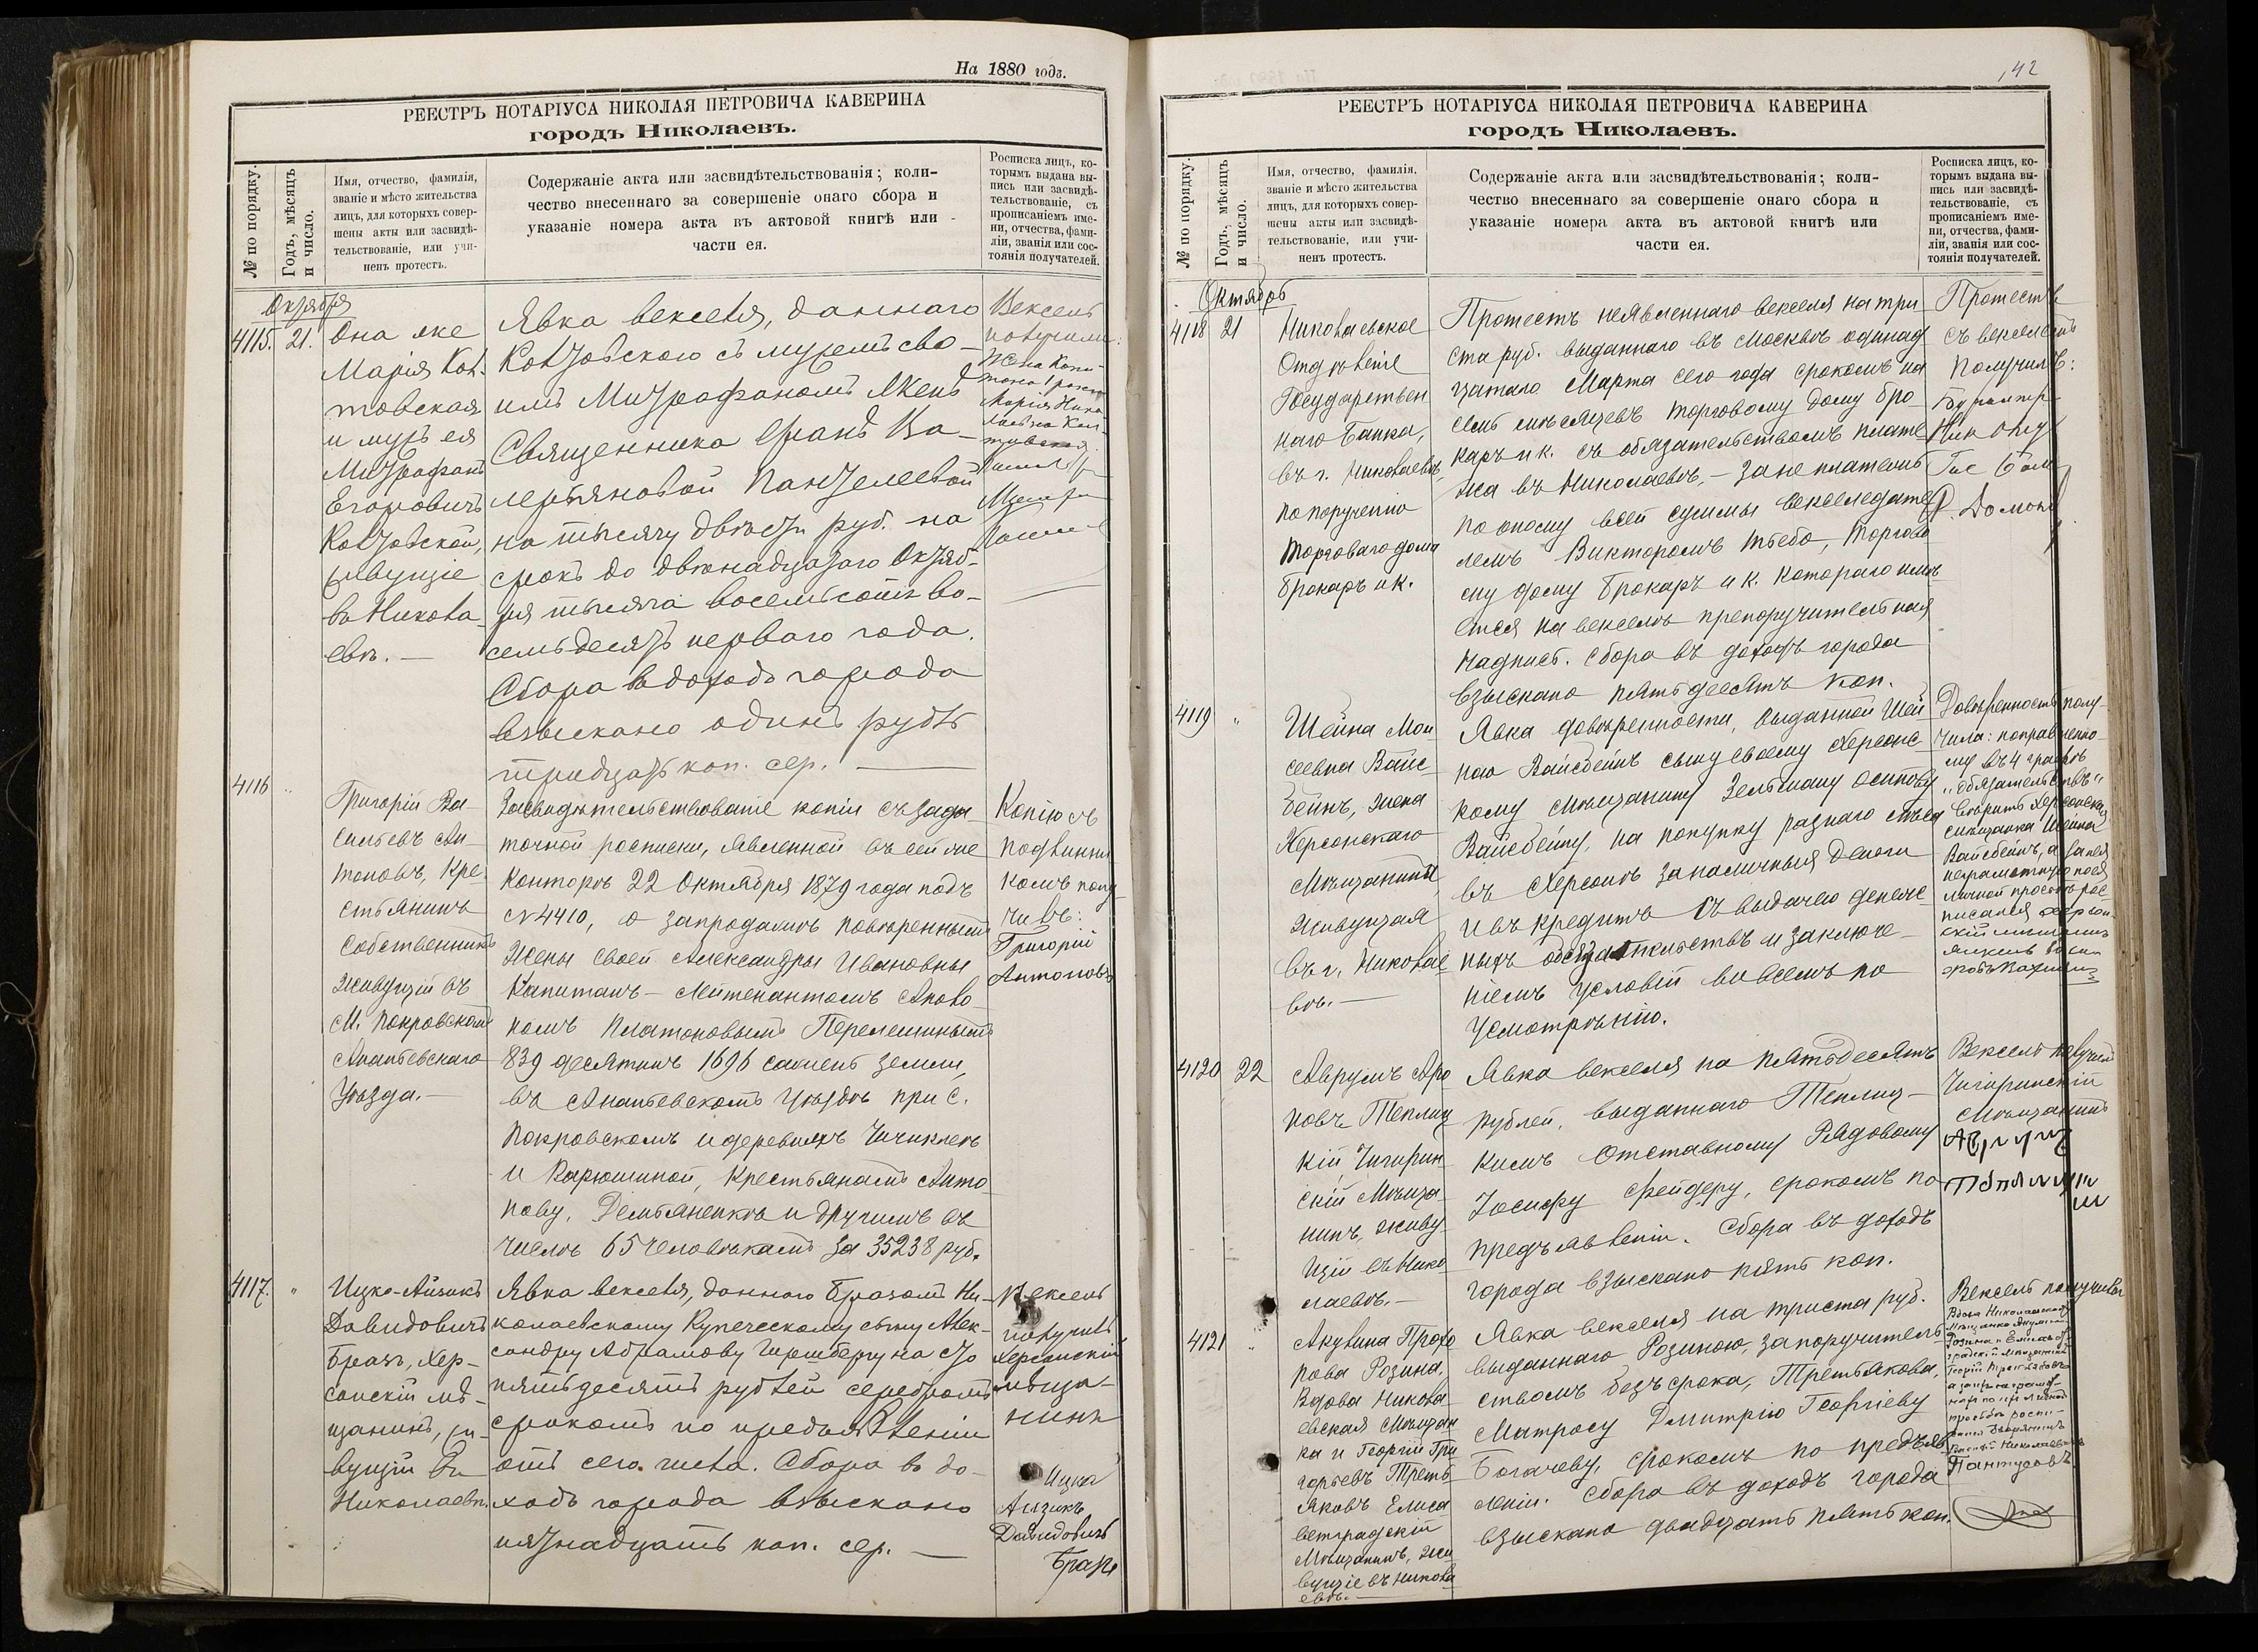 На 1880 годъ.
РЕЕСТРЪ НОТАРІУСА НИКОЛАЯ ПЕТРОВИЧА КАВЕРИНА
городъ Николаевъ.
№ по порядку.
Годъ, мѣсяцъ
и число.
Имя, отчество, фамилія,
званіе и мѣсто жительства
лицъ, для которыхъ совер-
шены акты или засвидѣ-
тельствованіе, или учи-
ненъ протестъ.
Содержаніе акта или засвидѣтельствованія; коли-
чество внесеннаго за совершеніе онаго сбора и
указаніе номера акта въ актовой книгѣ или
части ея.
Росписка лицъ, ко-
торымъ выдана вы-
пись или засвидѣ-
тельствованіе, съ
прописаніемъ име-
ни, отчества, фами-
ліи, званія или сос-
тоянія получателей.
Октября
4115. 21.
Она же
Марія Кол-
товская
и мужъ ея
Митрофанъ
Егоровичъ
Колтовской,
живущіе
въ Никола-
евѣ. —
Явка векселя, даннаго
Колтовскою съ мужемъ сво-
имъ Митрофаномъ Женѣ
Священника Ва-
лерьяновой Пантелеевой
на тысячу двѣсти руб. на
срокъ до двѣнадцатаго Октяб-
ря тысяча восемьсотъ во-
семьдесятъ перваго года.
Сбора въ доходъ города
взыскано одинъ рубль
тридцать коп. сер. —
Вексель
получили:
Жена Капи-
Марія Нико-
лаевна Кол-
товская
4116 "
Григорій Ва-
сильевъ Ан-
тоновъ, Кре-
стьянинъ
Собственникъ
живущій въ
М. Покровскомъ
Ананьевскаго
Уѣзда. —
Засвидѣтельствованіе копіи съ зада-
точной росписки, явленной въ сей же
Конторѣ 22 Октября 1879 года подъ
№ 4410, о запродажѣ повѣреннымъ
Жены своей Александры Ивановны
Капитанъ-Лейтенантомъ
Платоновымъ Перелешинымъ
839 десятинъ 1696 сажень земли,
въ Ананьевскомъ Уѣздѣ при с.
Покровскомъ и деревняхъ Чичиклеѣ
и Карюшиной, Крестьянамъ Анто-
нову, Демьяненко и другимъ въ
числѣ 65 человѣкамъ за 35238 руб.
Копію съ
подлинни
комъ полу
чилъ:
Григорій
Антоновъ
4117. "
Ицко-Айзикъ
Давидовичъ
Бразъ, Хер-
сонскій мѣ-
щанинъ, жи-
вущій въ
Николаевѣ.
Явка векселя, даннаго Бразомъ Ни-
колаевскому Купеческому сыну Алек-
сандру Абрамову Гиршбергу на сто
пятьдесятъ рублей серебромъ
срокомъ по предъявленіи
отъ сего числа. Сбора въ до-
ходъ города взыскано
пятнадцать коп. сер. —
Вексель
получилъ
Херсонскій
мѣща-
нинъ
Ицка
Айзикъ
Давидовичъ
Бразъ
142
РЕЕСТРЪ НОТАРІУСА НИКОЛАЯ ПЕТРОВИЧА КАВЕРИНА
городъ Николаевъ.
№ по порядку.
Годъ, мѣсяцъ
и число.
Имя, отчество, фамилія,
званіе и мѣсто жительства
лицъ, для которыхъ совер-
шены акты или засвидѣ-
тельствованіе, или учи-
ненъ протестъ.
Содержаніе акта или засвидѣтельствованія; коли-
чество внесеннаго за совершеніе онаго сбора и
указаніе номера акта въ актовой книгѣ или
части ея.
Росписка лицъ, ко-
торымъ выдана вы-
пись или засвидѣ-
тельствованіе, съ
прописаніемъ име-
ни, отчества, фами-
ліи, званія или сос-
тоянія получателей.
Октябрь
4118 21
Николаевское
Отдѣленіе
Государствен
наго Банка,
въ г. Николаевѣ,
по порученію
Торговаго дома
Брокаръ и К.
Протестъ неявленнаго векселя на три
ста руб. выданнаго въ Москвѣ одинад
цатаго Марта сего года срокомъ на
семь мѣсяцевъ торговому дому Бро-
каръ и К. съ обязательствомъ плате
жа въ Николаевѣ, – за неплатежъ
по оному всей суммы векселедате
лемъ Викторомъ Тьебо, Торгово
му дому Брокаръ и К. котораго имѣ
ется на векселѣ препоручительная
надпись. Сбора въ доходъ города
взыскано пятьдесятъ коп.
Протестъ
съ векселемъ
Получилъ:
4119 "
Шейна Мои
сеевна Вайс-
бейнъ, жена
Херсонскаго
Мѣщанина
живущая
въ г. Николае
вѣ. —
Явка довѣренности, выданной Шей
ною Вайсбейнъ сыну своему Херсонс
кому мѣщанину Зельману Осипову
Вайсбейну, на покупку разнаго
въ Херсонѣ за наличныя деньги
и въ кредитъ съ выдачею денеж
ныхъ обязательствъ и заключе-
ніемъ условій во всемъ по
усмотрѣнію.
Довѣренность полу-
чила: поправленно-
му въ 4 графѣ
"обязательствъ"
вѣрить Херсонская
мѣщанка Шейна
Вайсбейнъ, а за нея
неграмотную по ея
личной просьбѣ рос-
писался херсон-
скій мѣщанинъ
4120 22
Аврумъ Аро
новъ Теплиц
кій Чигирин
скій Мѣща-
нинъ, живу
щій въ Нико-
лаевѣ. —
Явка векселя на пятьдесятъ
рублей, выданнаго Теплиц-
кимъ Отставному Рядовому
Іосифу Фейдеру, срокомъ по
предъявленіи. Сбора въ доходъ
города взыскано пять коп.
Вексель получилъ
Чигиринскій
Мѣщанинъ
4121 "
Акулина Прохо
рова Розина,
Вдова Никола
евская Мѣщан
ка и Георгій Гри
горьевъ Треть
яковъ Елиса
ветградскій
Мѣщанинъ, жи
вущіе въ Никола
евѣ. —
Явка векселя на триста руб.
выданнаго Розиною, за поручитель
ствомъ безъ срока, Третьякова,
Матросу Дмитрію Георгіеву
Богачеву, срокомъ по предъяв
леніи. Сбора въ доходъ города
взыскано двадцать пять коп.
Вексель получили
Вдова Николаевская
Мѣщанка Акулина
Розина и Елисавет-
градскій Мѣщанинъ
Георгій Третьяковъ
а за ихъ неграмот-
ныхъ по ихъ личной
просьбѣ роспи-
сался Дворянинъ
Николаевичъ
Пантусовъ